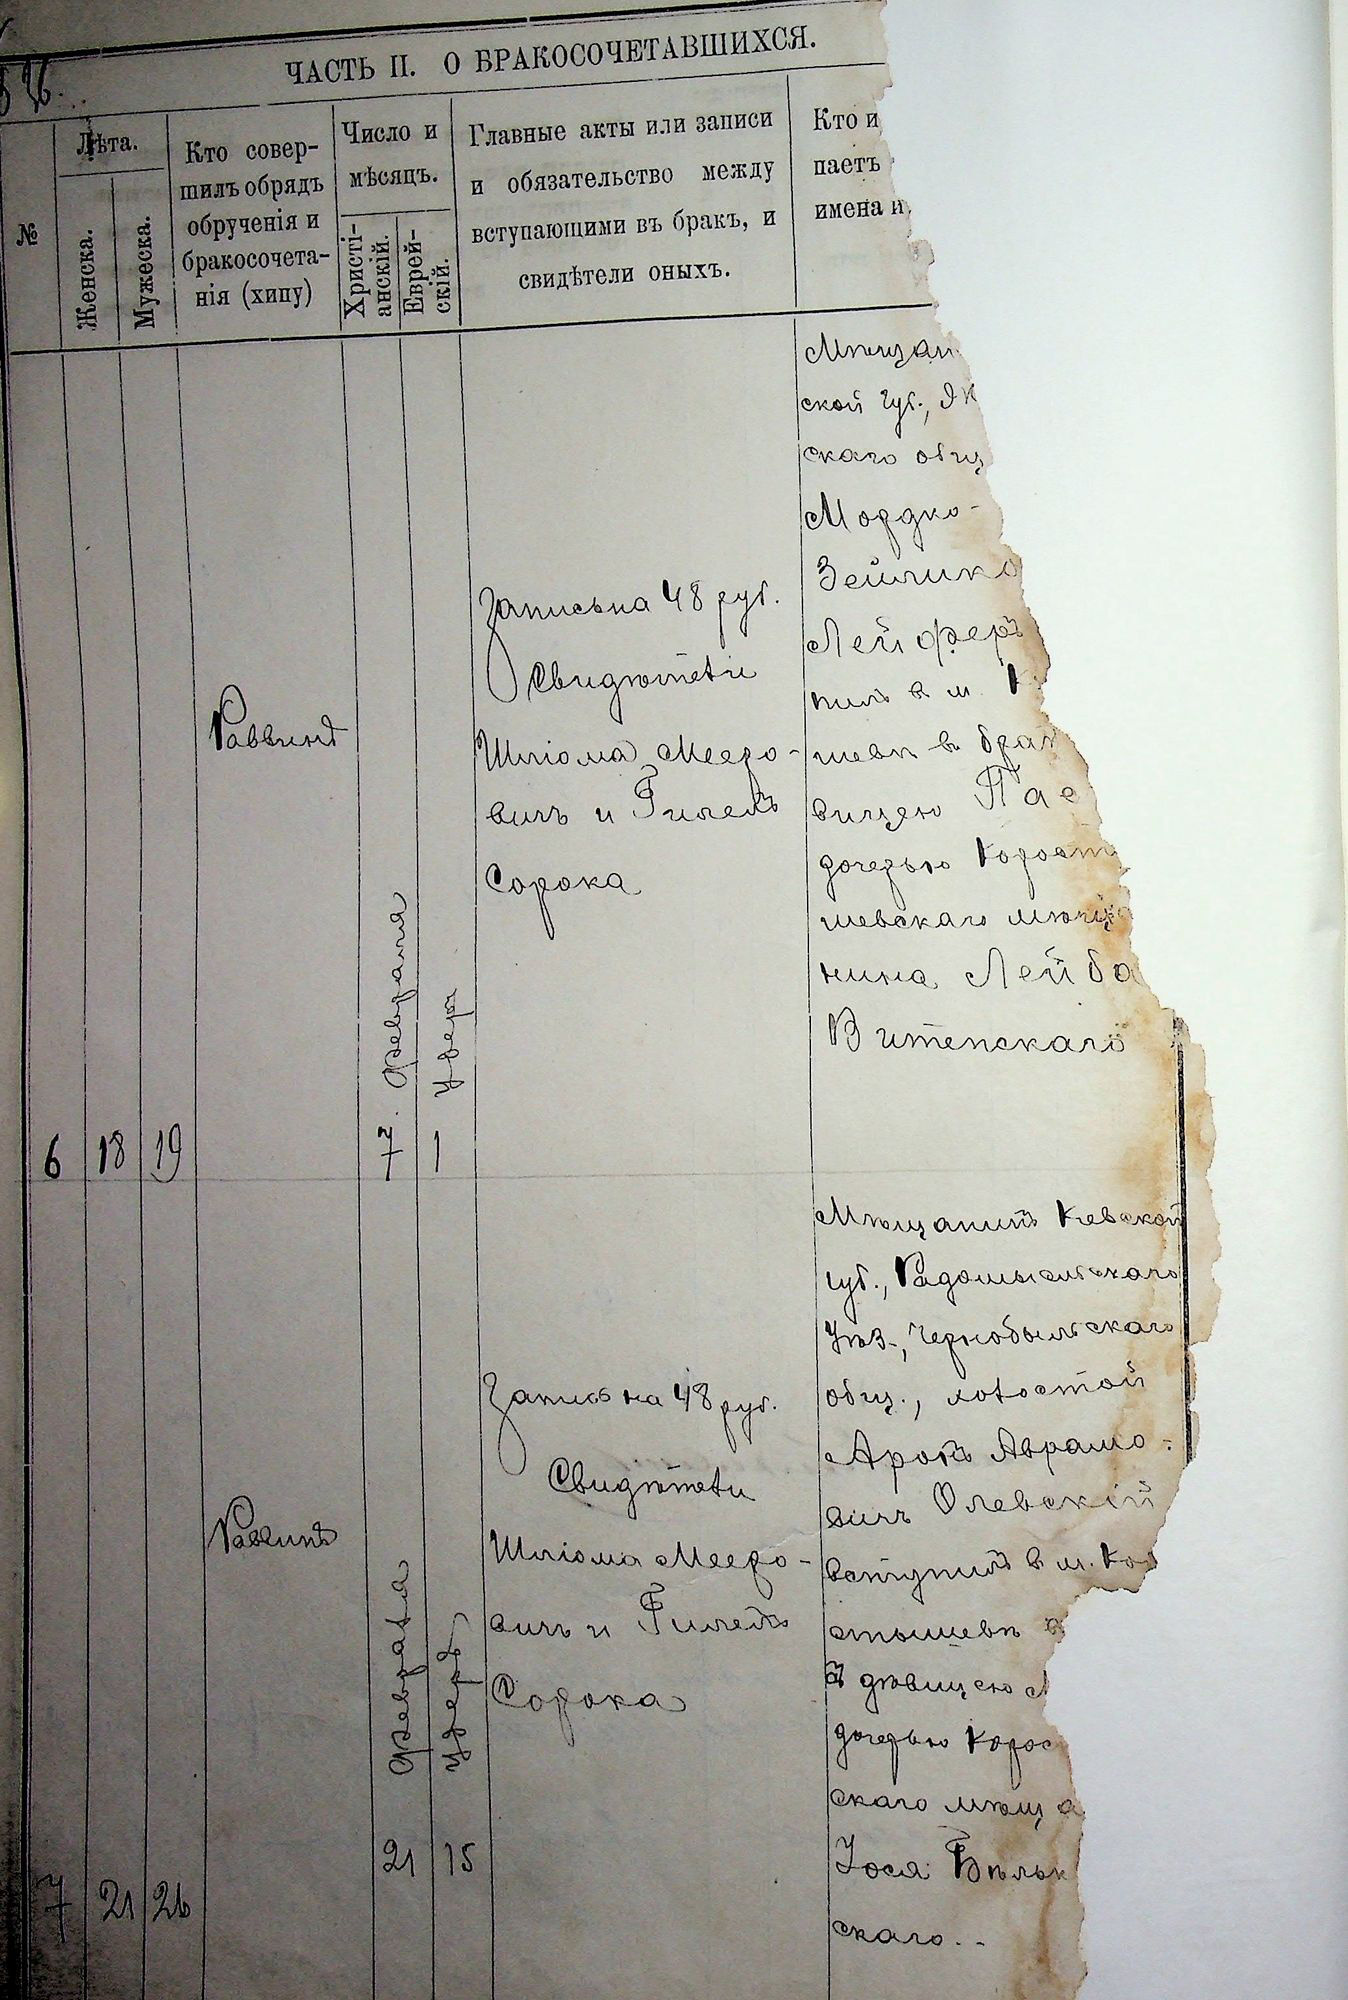 ЧАСТЬ II. О БРАКОСОЧЕТАВШИХСЯ.
№
Лѣта.
Женска.
Мужеска.
Кто совер-
шилъ обрядъ
обрученія и
бракосочета-
нія (хипу)
Число и
мѣсяцъ.
Христі-
анскій.
Еврей-
скій.
Главные акты или записи
и обязательство между
вступающими въ бракъ, и
свидѣтели оныхъ.
Кто и
паетъ
имена и
6
18
19
Раввинъ
7 Февраля
1
Запись на 48 руб.
Свидѣтели
Шліома Мееро-
вичъ и Гилелъ
Сорока
Мѣщан
ской губ.,
скаго общ
Мордко-
Зейлико
Лейферъ
пилъ в м. К
шевѣ в брак
вицею Пае
дочерью Корост
шевскаго мѣща
нина Лейба
Витепскаго
7
21
26
Раввинъ
21 Февраля
15
Запись на 48 руб.
Свидѣтели
Шліома Мееро-
вичъ и Гилелъ
Сорока
Мѣщанинъ Кевской
губ., Радомысльскаго
Уѣз., Чернобыльскаго
общ., холостой
Аронъ Аврамо-
вичъ Олевскій
вступилъ в м. Кор
стышевѣ
дѣвицею
дочерью Корос
скаго мѣща
Іося Бѣльк
скаго..